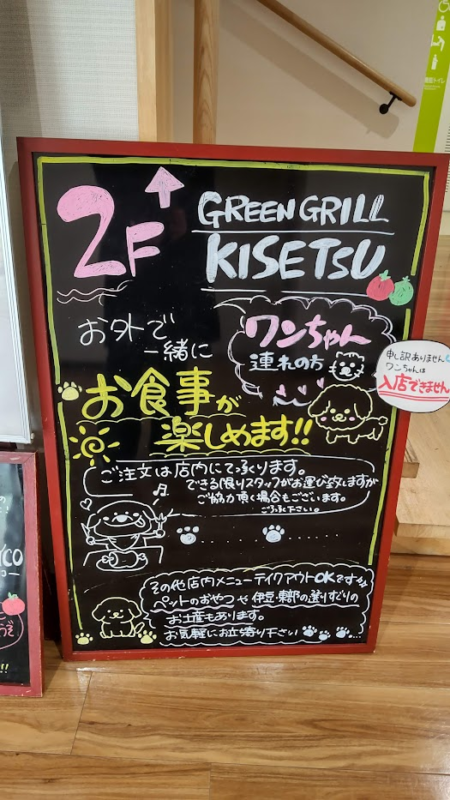 2F
GREEN GRILL
KISETSU
お外で
一緒に
ワンちゃん
連れの方
お食事が
楽しめます!!
申し訳ありません
ワンちゃんは
入店できません
ご注文は店内にて承ります。
できる限りスタッフがお運び致しますが
ご協力頂く場合もございます。
ご了承下さい。
その他店内メニューテイクアウトOKです
ペットのおやつや伊豆・東部の選りすぐりの
お土産もあります。
お気軽にお立寄り下さい